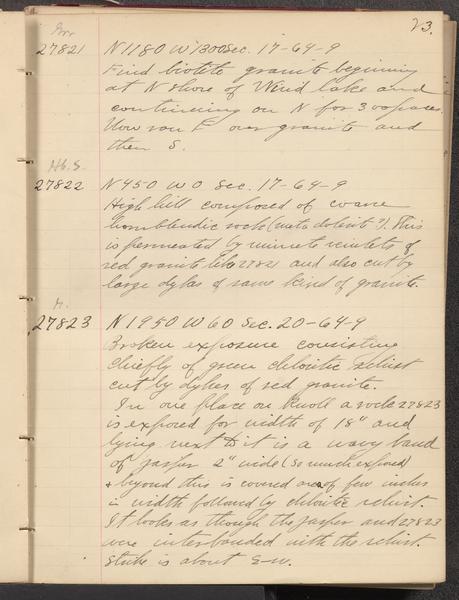 23.
Grr
27821 N 1180 W 1300 Sec. 17-64-9
Find biotite granite beginning
at N shore of Wind lake and
continuing on N for 300 paces.
Now run E over granite and
then S.
Hb. S.
27822 N 450 W 0 Sec. 17-64-9
High hill composed of coarse
hornblendic rock (meta dolerite?). This
is permeated by minute veinlets of
red granite like 27821 and also cut by
large dykes of same kind of granite.
27823 N 1950 W 60 Sec. 20-64-9
Broken exposure consisting
chiefly of green chloritic schist
cut by dykes of red granite.
In one place on knoll a rock 27823
is exposed for width of 18" and
lying next to it is a wavy band
of jasper 2" wide (so much exposed)
& beyond this is covered area of few inches
in width followed by chloritic schist.
It looks as though the jasper and 27823
were interbanded with the schist.
Strike is about E-W.